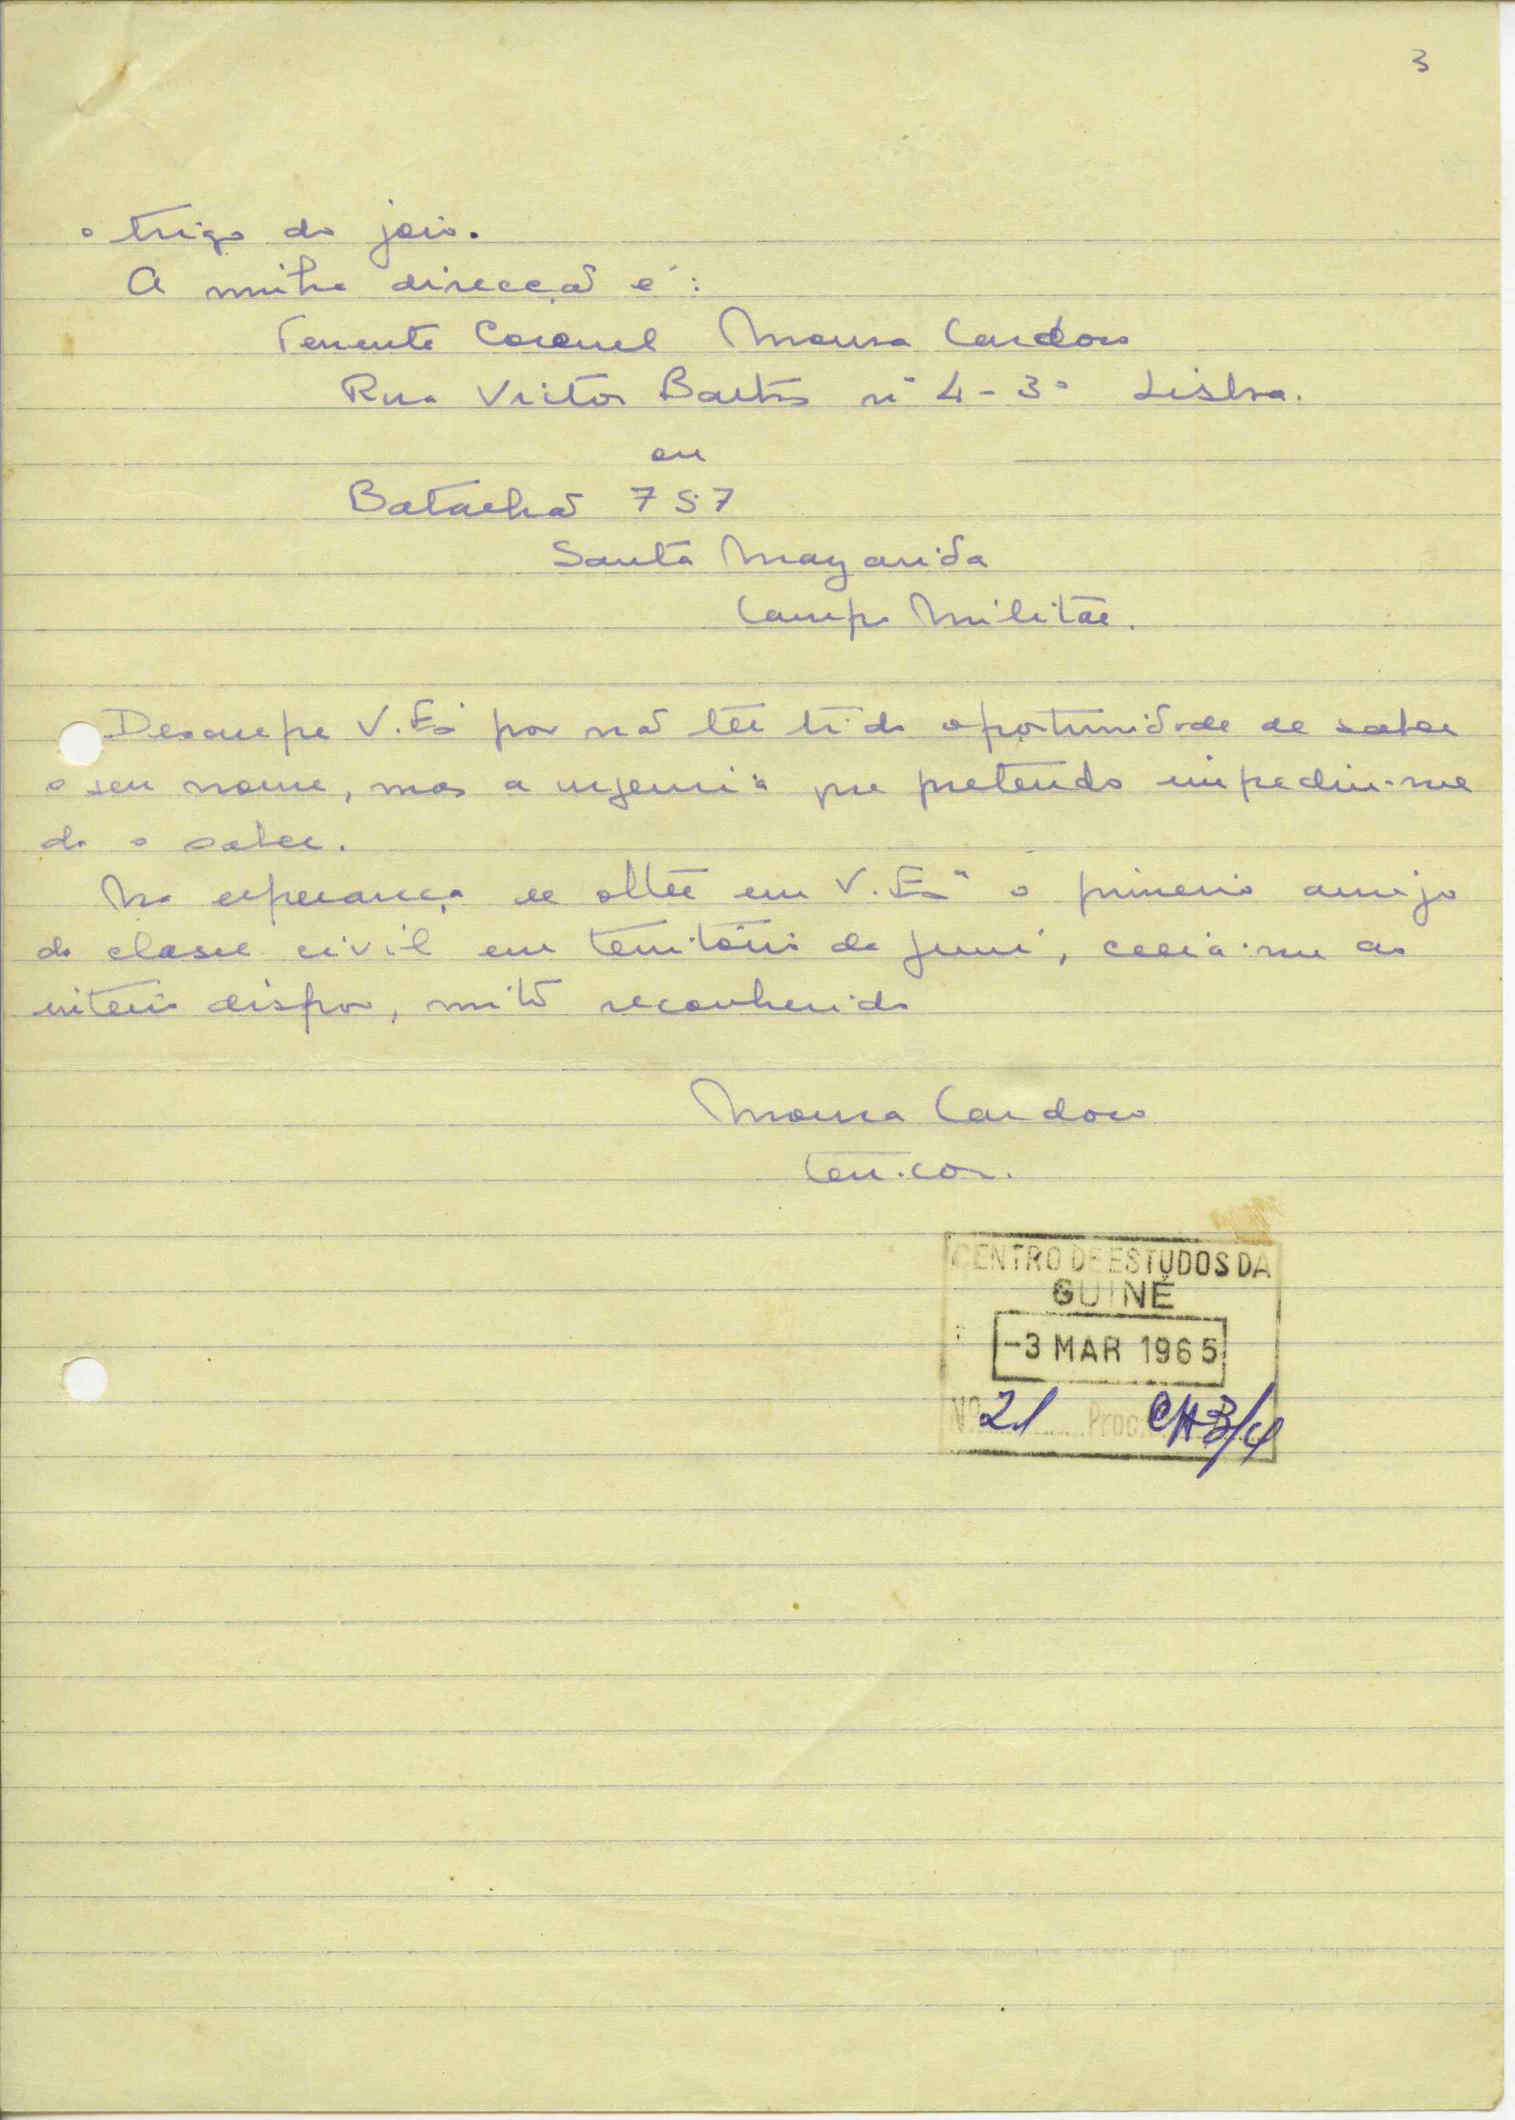 3
o trigo do joio.
A minha direcção é:
Tenente Coronel Moura Cardoso
Rua Victor Bastos nº 4-3º Lisboa.
ou
Batalhão 757
Santa Margarida
Campo Militar.
Desculpe V. Exª por não ter tido oportunidade de saber
o seu nome, mas a urgencia que pretendo impediu-me
de o saber.
Na esperança de obter em V. Exª o primeiro amigo
da classe civil em território da Guiné, creia-me ao
inteiro dispor, muito reconhecido
Moura Cardoso
ten. cor.
CENTRO DE ESTUDOS DA
GUINÉ
-3 MAR 1965
Nº 21 Proc. CH 3/4